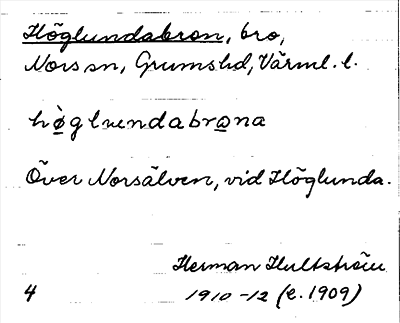 Höglundabron, bro,
Nors sn, Grums hd, Värml. l.
hö̀glundabrona
Över Norsälven, vid Höglunda.
Herman Hultström
4 1910-12 (e. 1909)